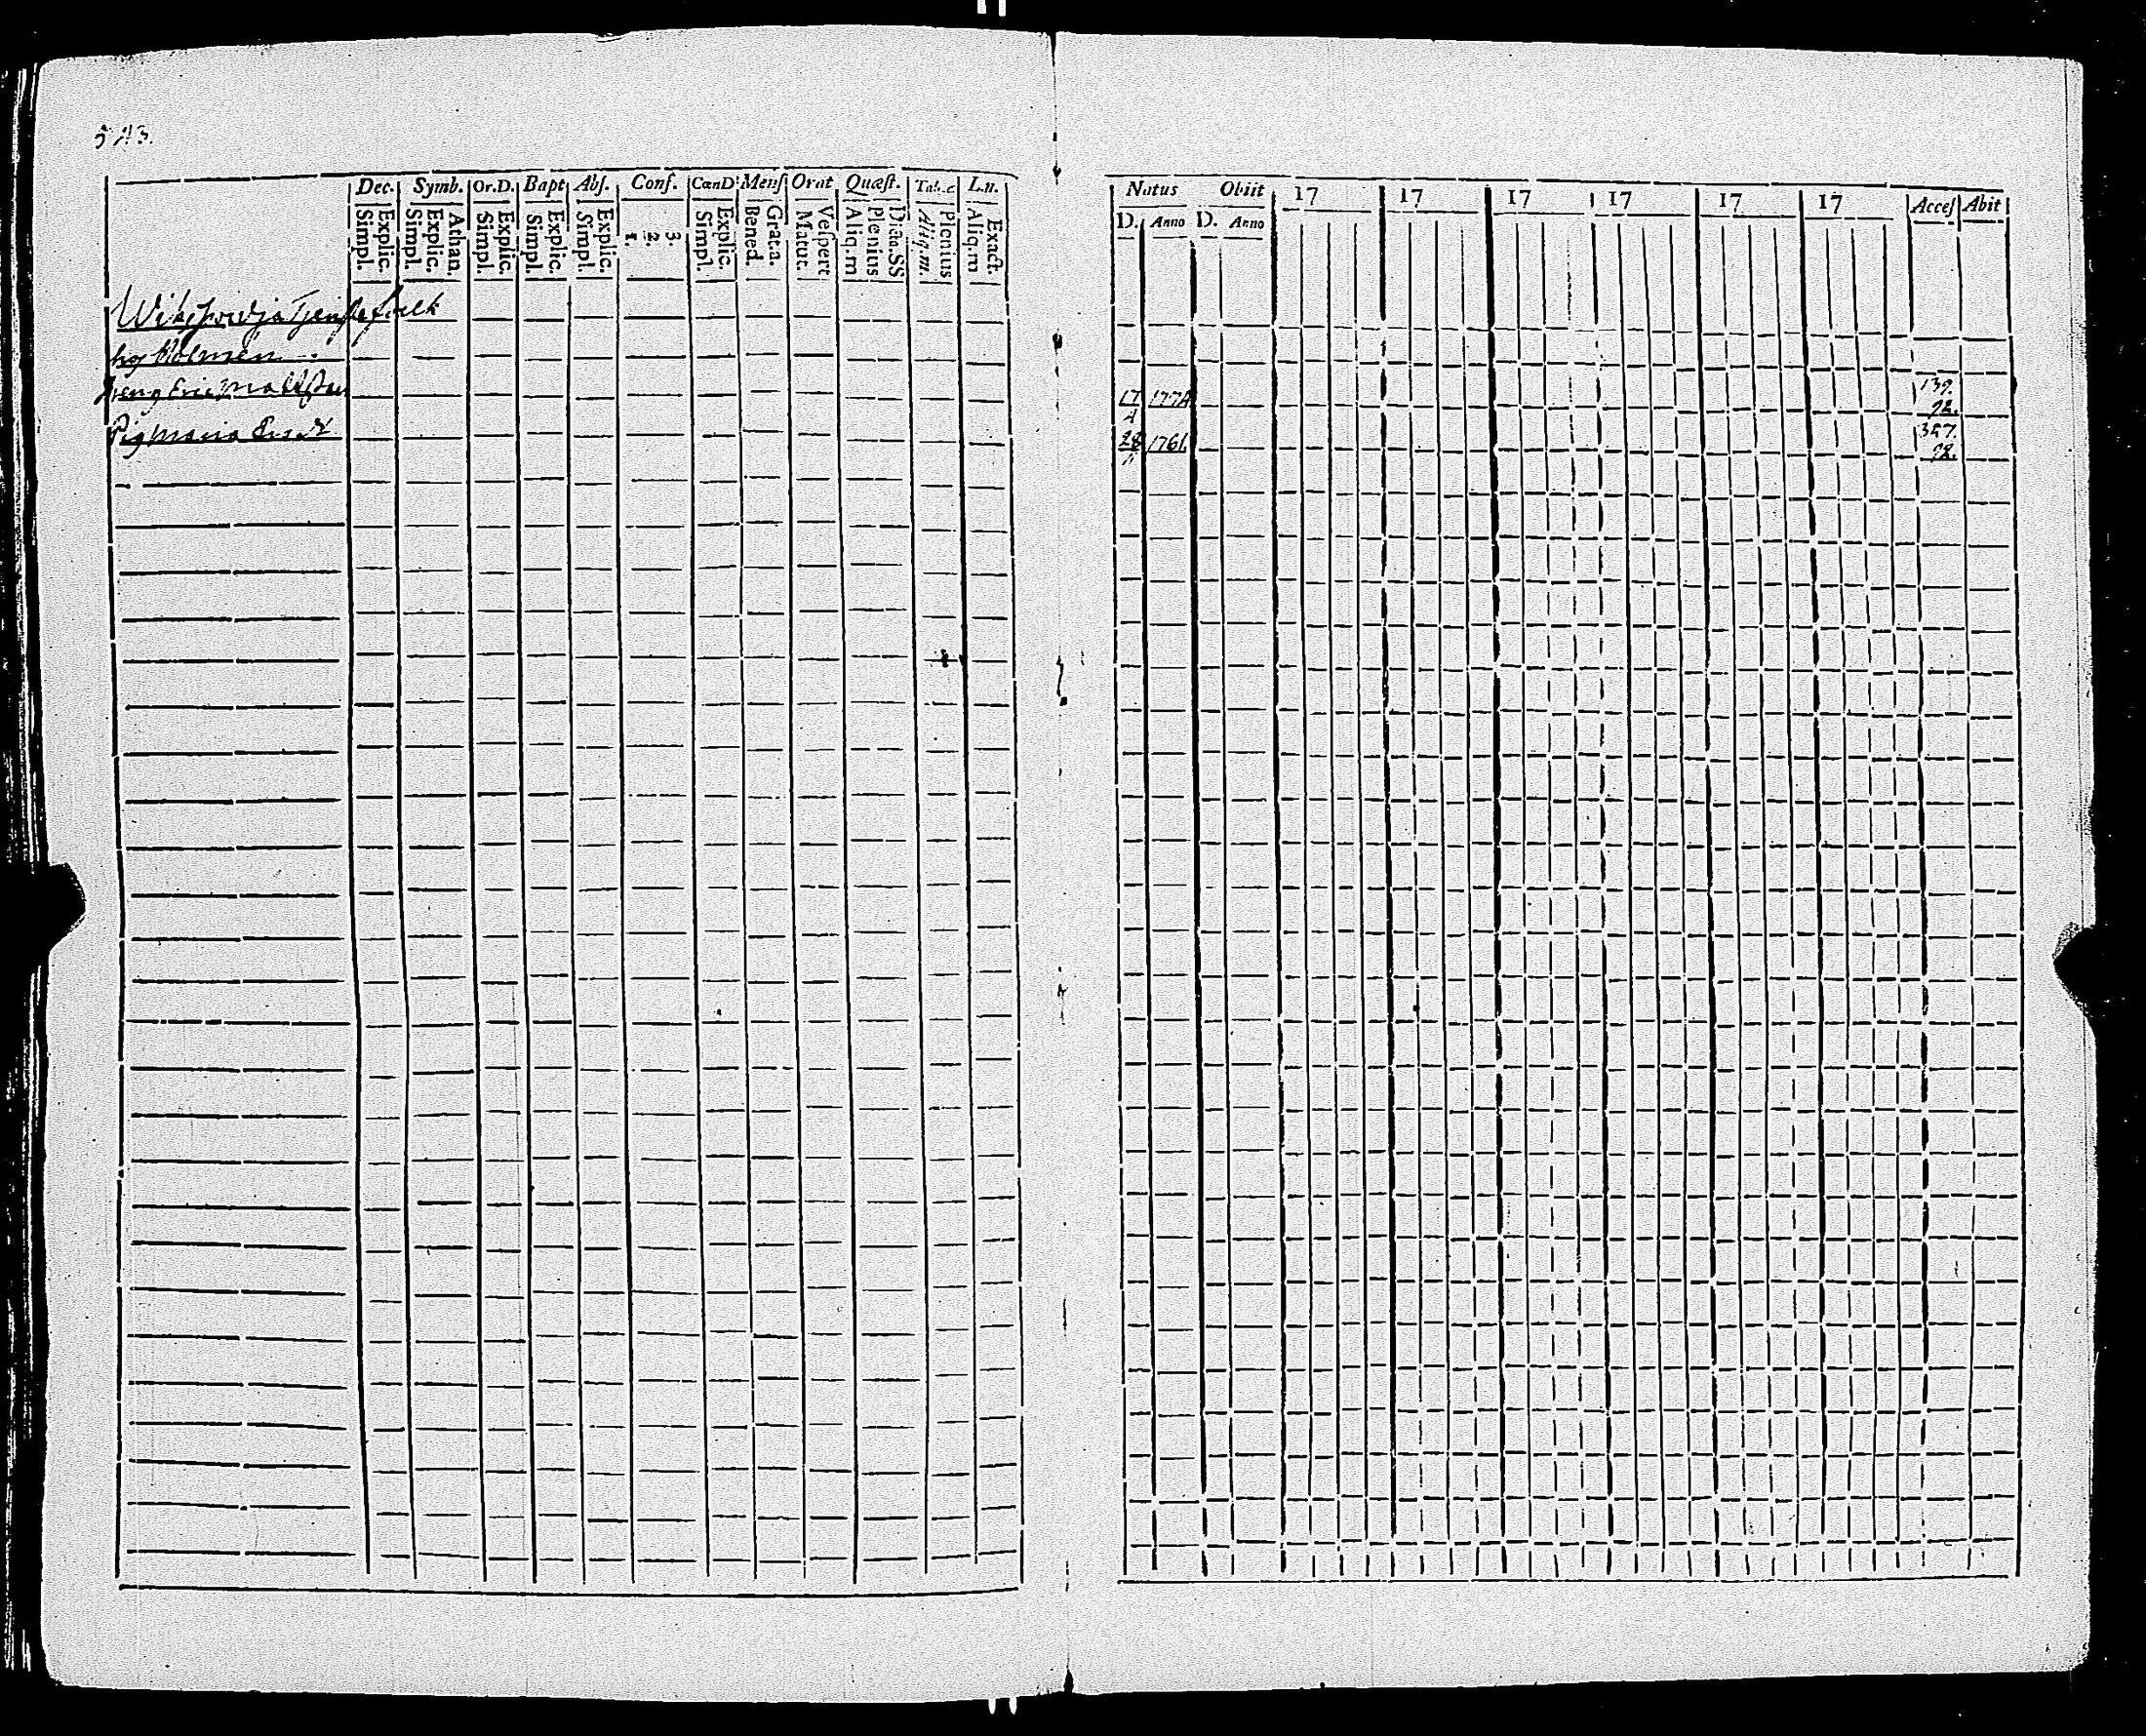 543.
Dec. Symb. Or.D. Bapt Abſ. Conf. CœnD Menſ Orat Quæſt. Tab.œ L.n.
Simpl. Explic. Simpl. Explic. Athan. Simpl. Explic. Simpl. Explic. Simpl. Explic. 1. 2. 3. Simpl. Explic. Bened. Grat.a. Matut. Veſpert Aliq.m Plenius Aliq.m. Plenius Aliq.m Exact.
Tjenstefolk
hos Holmén
Dreng Eric Mattsson
Pig Maria
Natus Obiit 17 17 17 17 17 17 Acceſ Abit
D. Anno D. Anno
17 1774 139.
4 92.
28 1761. 357.
92.